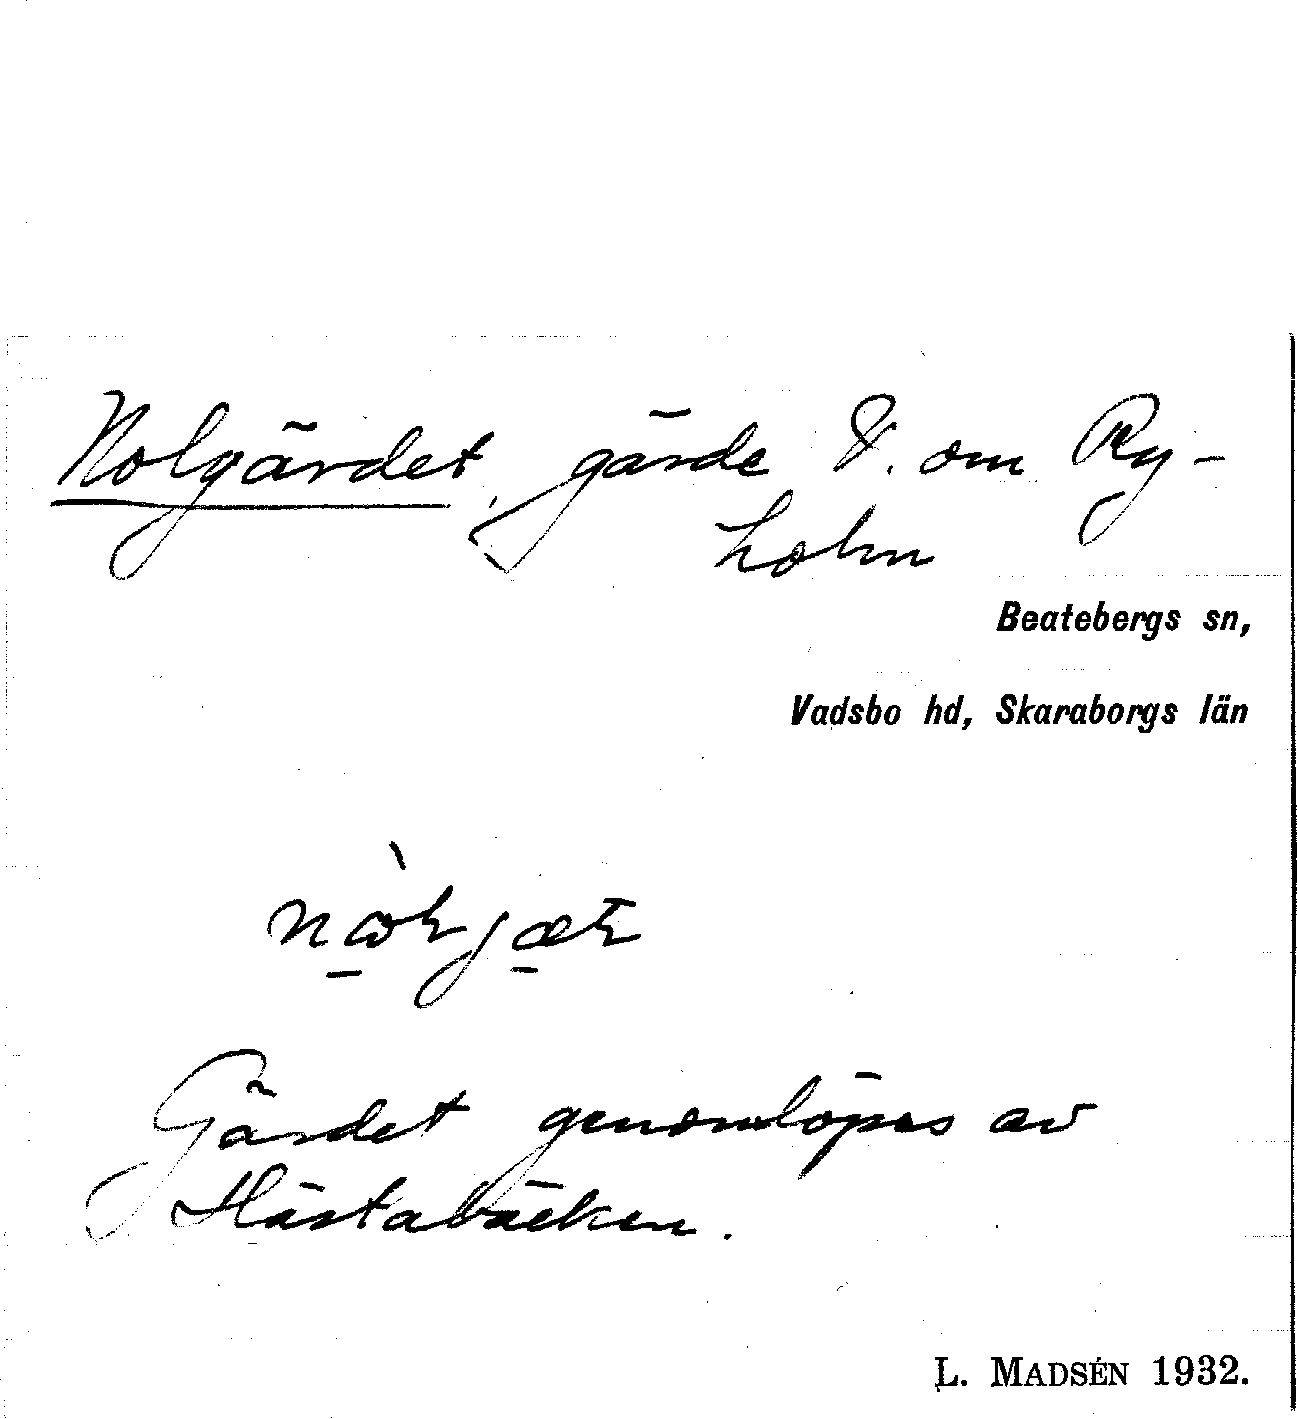 Nolgärdet, gärde V. om Ry-
holm
Beatebergs sn,
Vadsbo hd, Skaraborgs län
Gärdet genomlöpes av
Hästabäcken.
L. MADSÉN 1932.